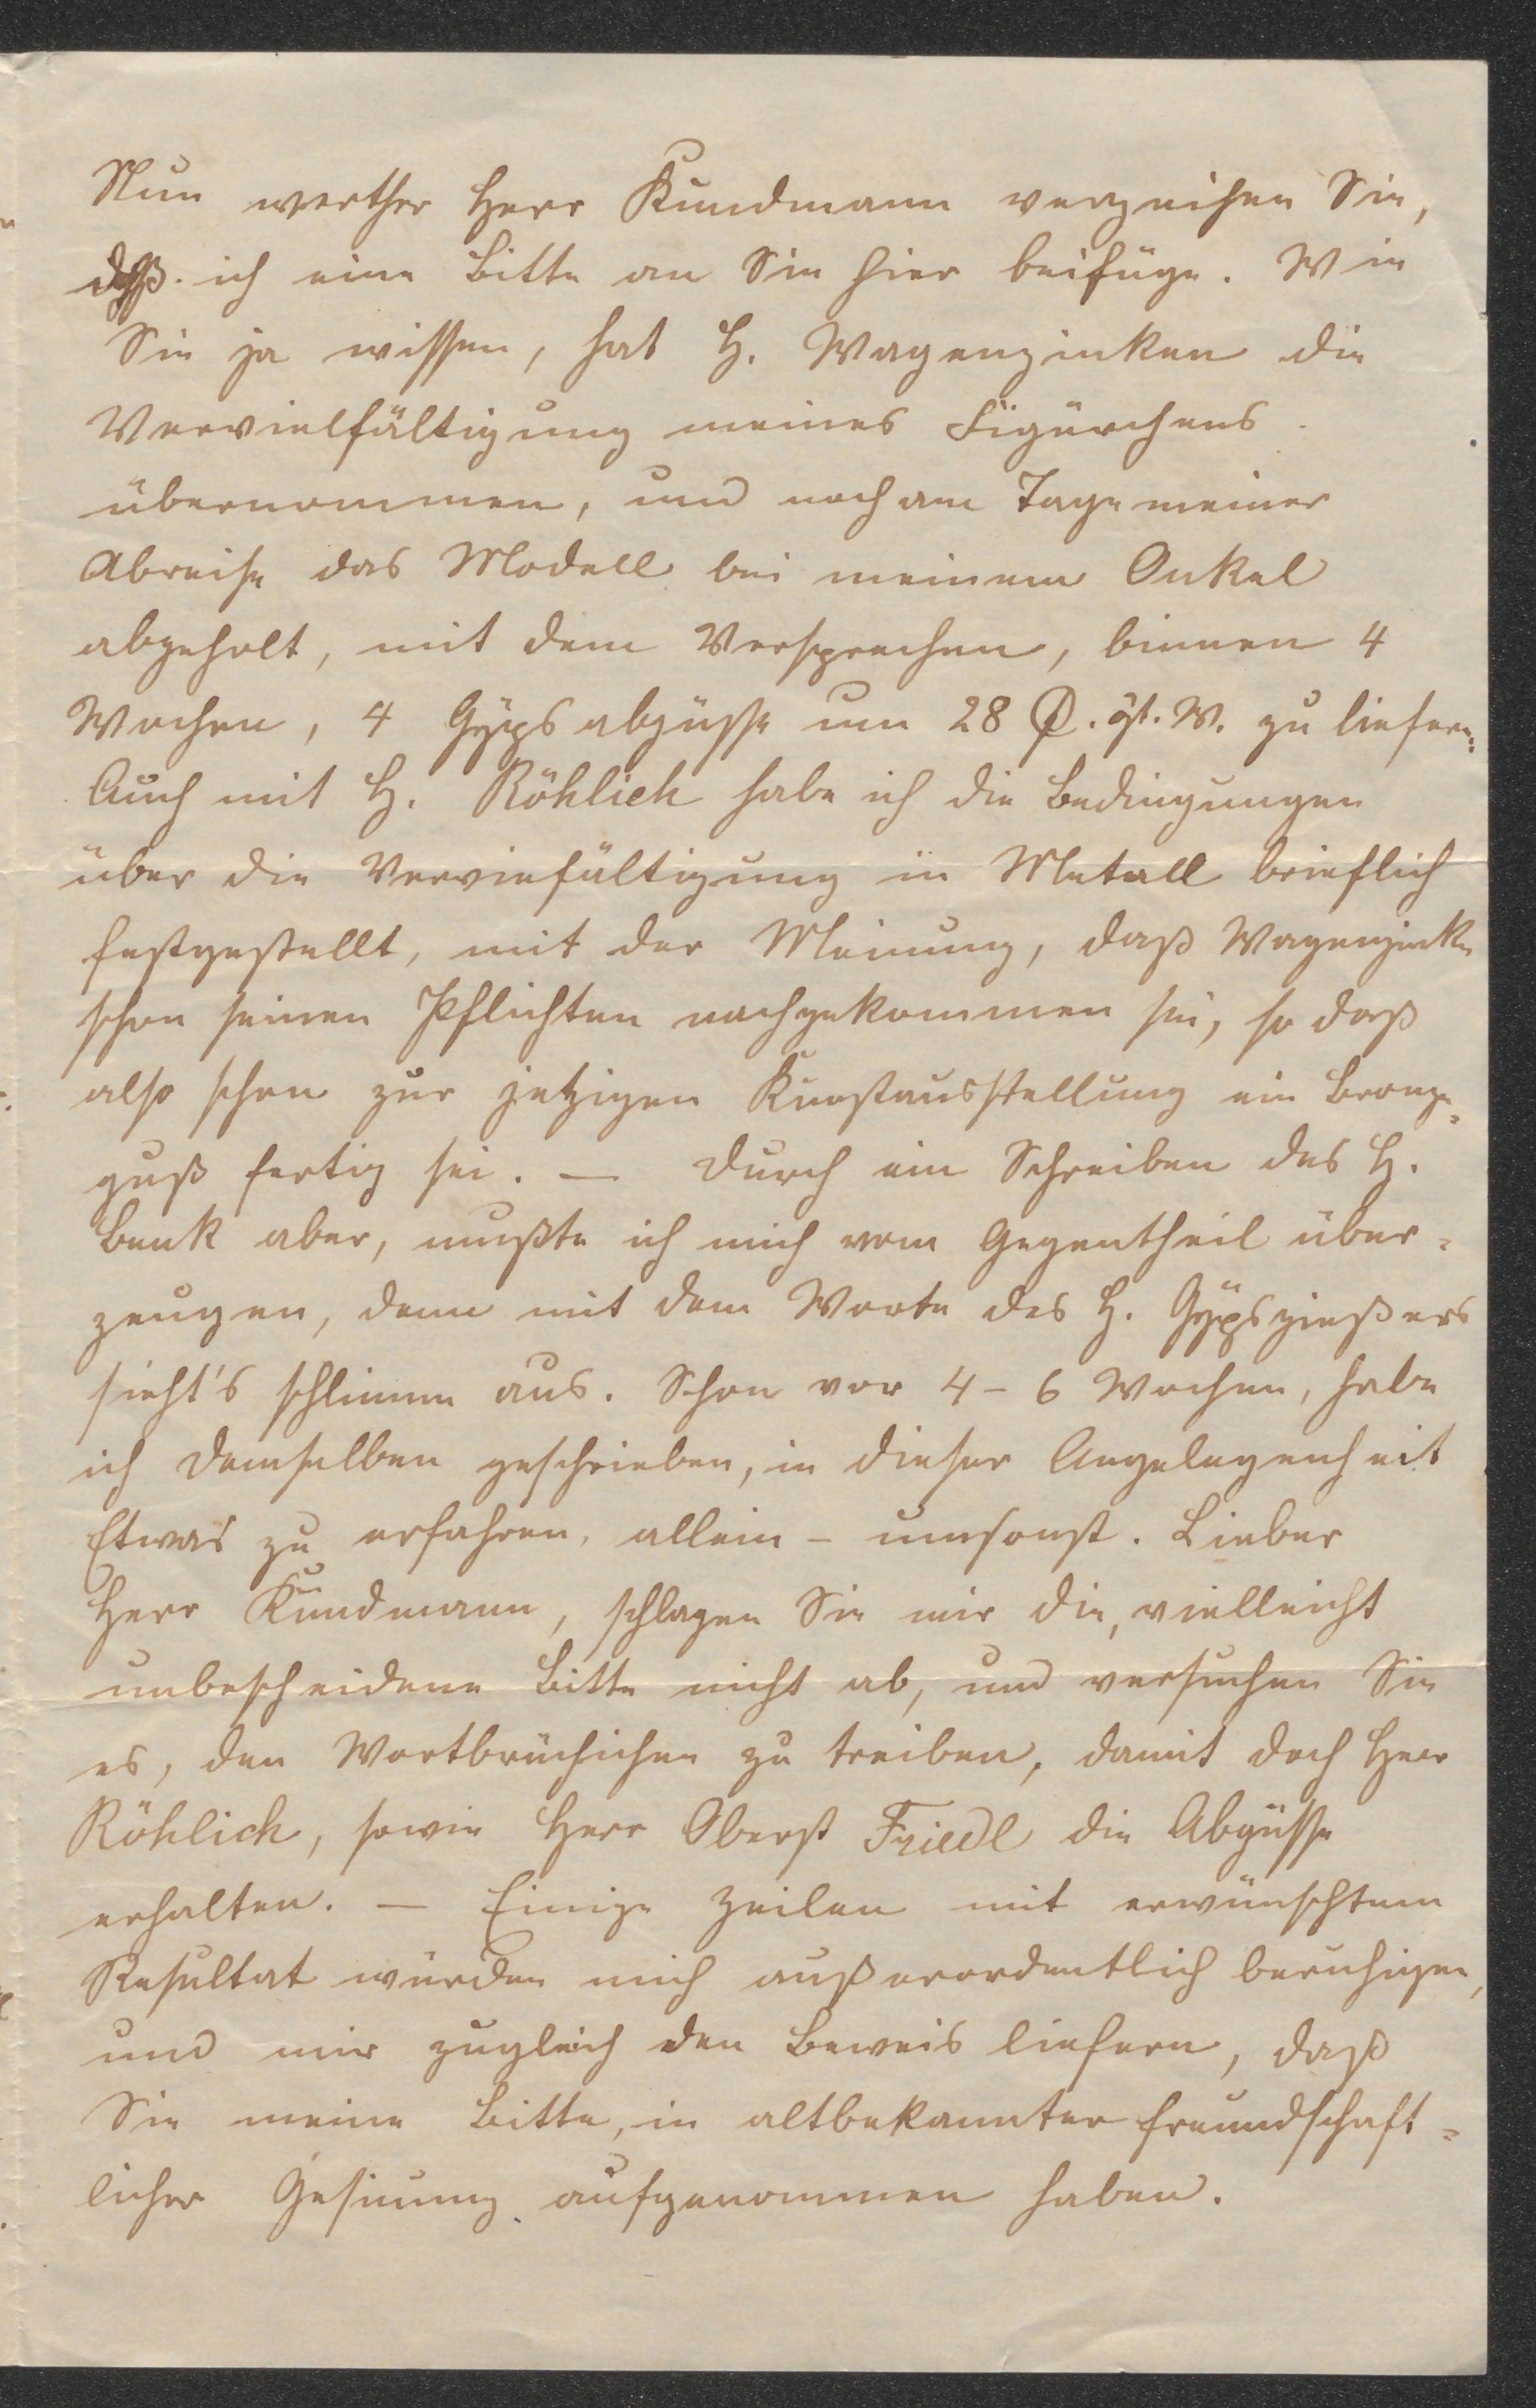 Nun werther Herr Kundmann verzeihen Sie,
daß ich eine Bitte an Sie hier beifüge. Wie
Sie ja wissen, hat H. Wagenzinken die
Vervielfältigung meines Figürchens
übernommen, und noch am Tage meiner
Abreise das Modell bei meinem Onkel
abgeholt, mit dem Versprechen, binnen 4
Wochen, 4 Gÿpsabgüsse um 28 öst. W. zu liefern.
Auch mit H. Röhlich habe ich die Bedingungen
über die Verviefältigung in Metall brieflich
festgestellt, mit der Meinung, daß Wagenzinken
schon seinen Pflichten nachgekommen sei, so daß
also schon zur jetzigen Kunstausstellung ein Bronze-
guß fertig sei. — Durch ein Schreiben des H.
Benk aber, mußte ich mich vom Gegentheil über-
zeugen, denn mit dem Worte des H. Gÿpsgießers
sieht's schlimm aus. Schon vor 4 – 6 Wochen, habe
ich demselben geschrieben, in dieser Angelegenheit
Etwas zu erfahren, allein – umsonst. Lieber
Herr Kundmann, schlagen Sie mir die, vielleicht
unbescheidene Bitte nicht ab, und versuchen Sie
es, den Wortbrüchichen zu treiben, damit doch Herr
Röhlich, sowie Herr Oberst Friedl die Abgüsse
erhalten. — Einige Zeilen mit erwünschtem
Resultat würden mich außerordentlich beruhigen,
und mir zugleich den Beweis liefern, daß
Sie meine Bitte, in altbekannter freundschaft-
licher Gesinung aufgenommen haben.